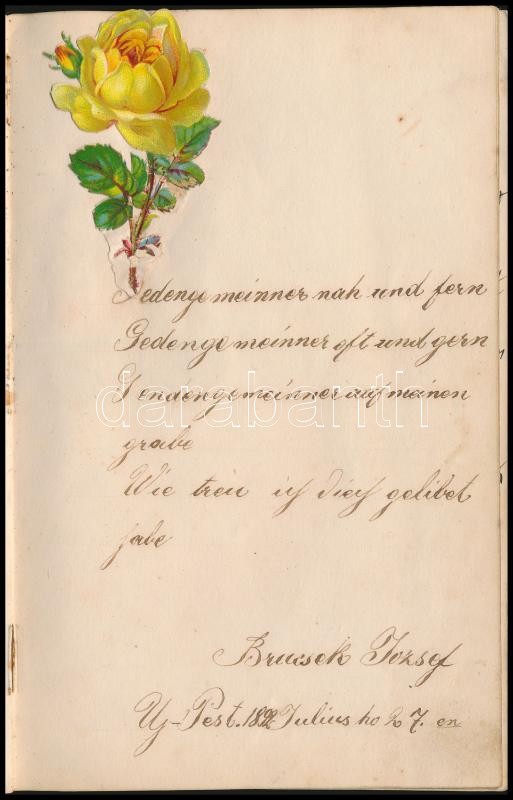 Gedenge meinner nah und fern
Gedenge meinner oft und gern
Gendenge meinner auf meinen
grabe
Wie treu ich dich gelibet
habe
darabanth
Brucsek Jozsef
Uj-Pest. 1892 Julius ho 27. en